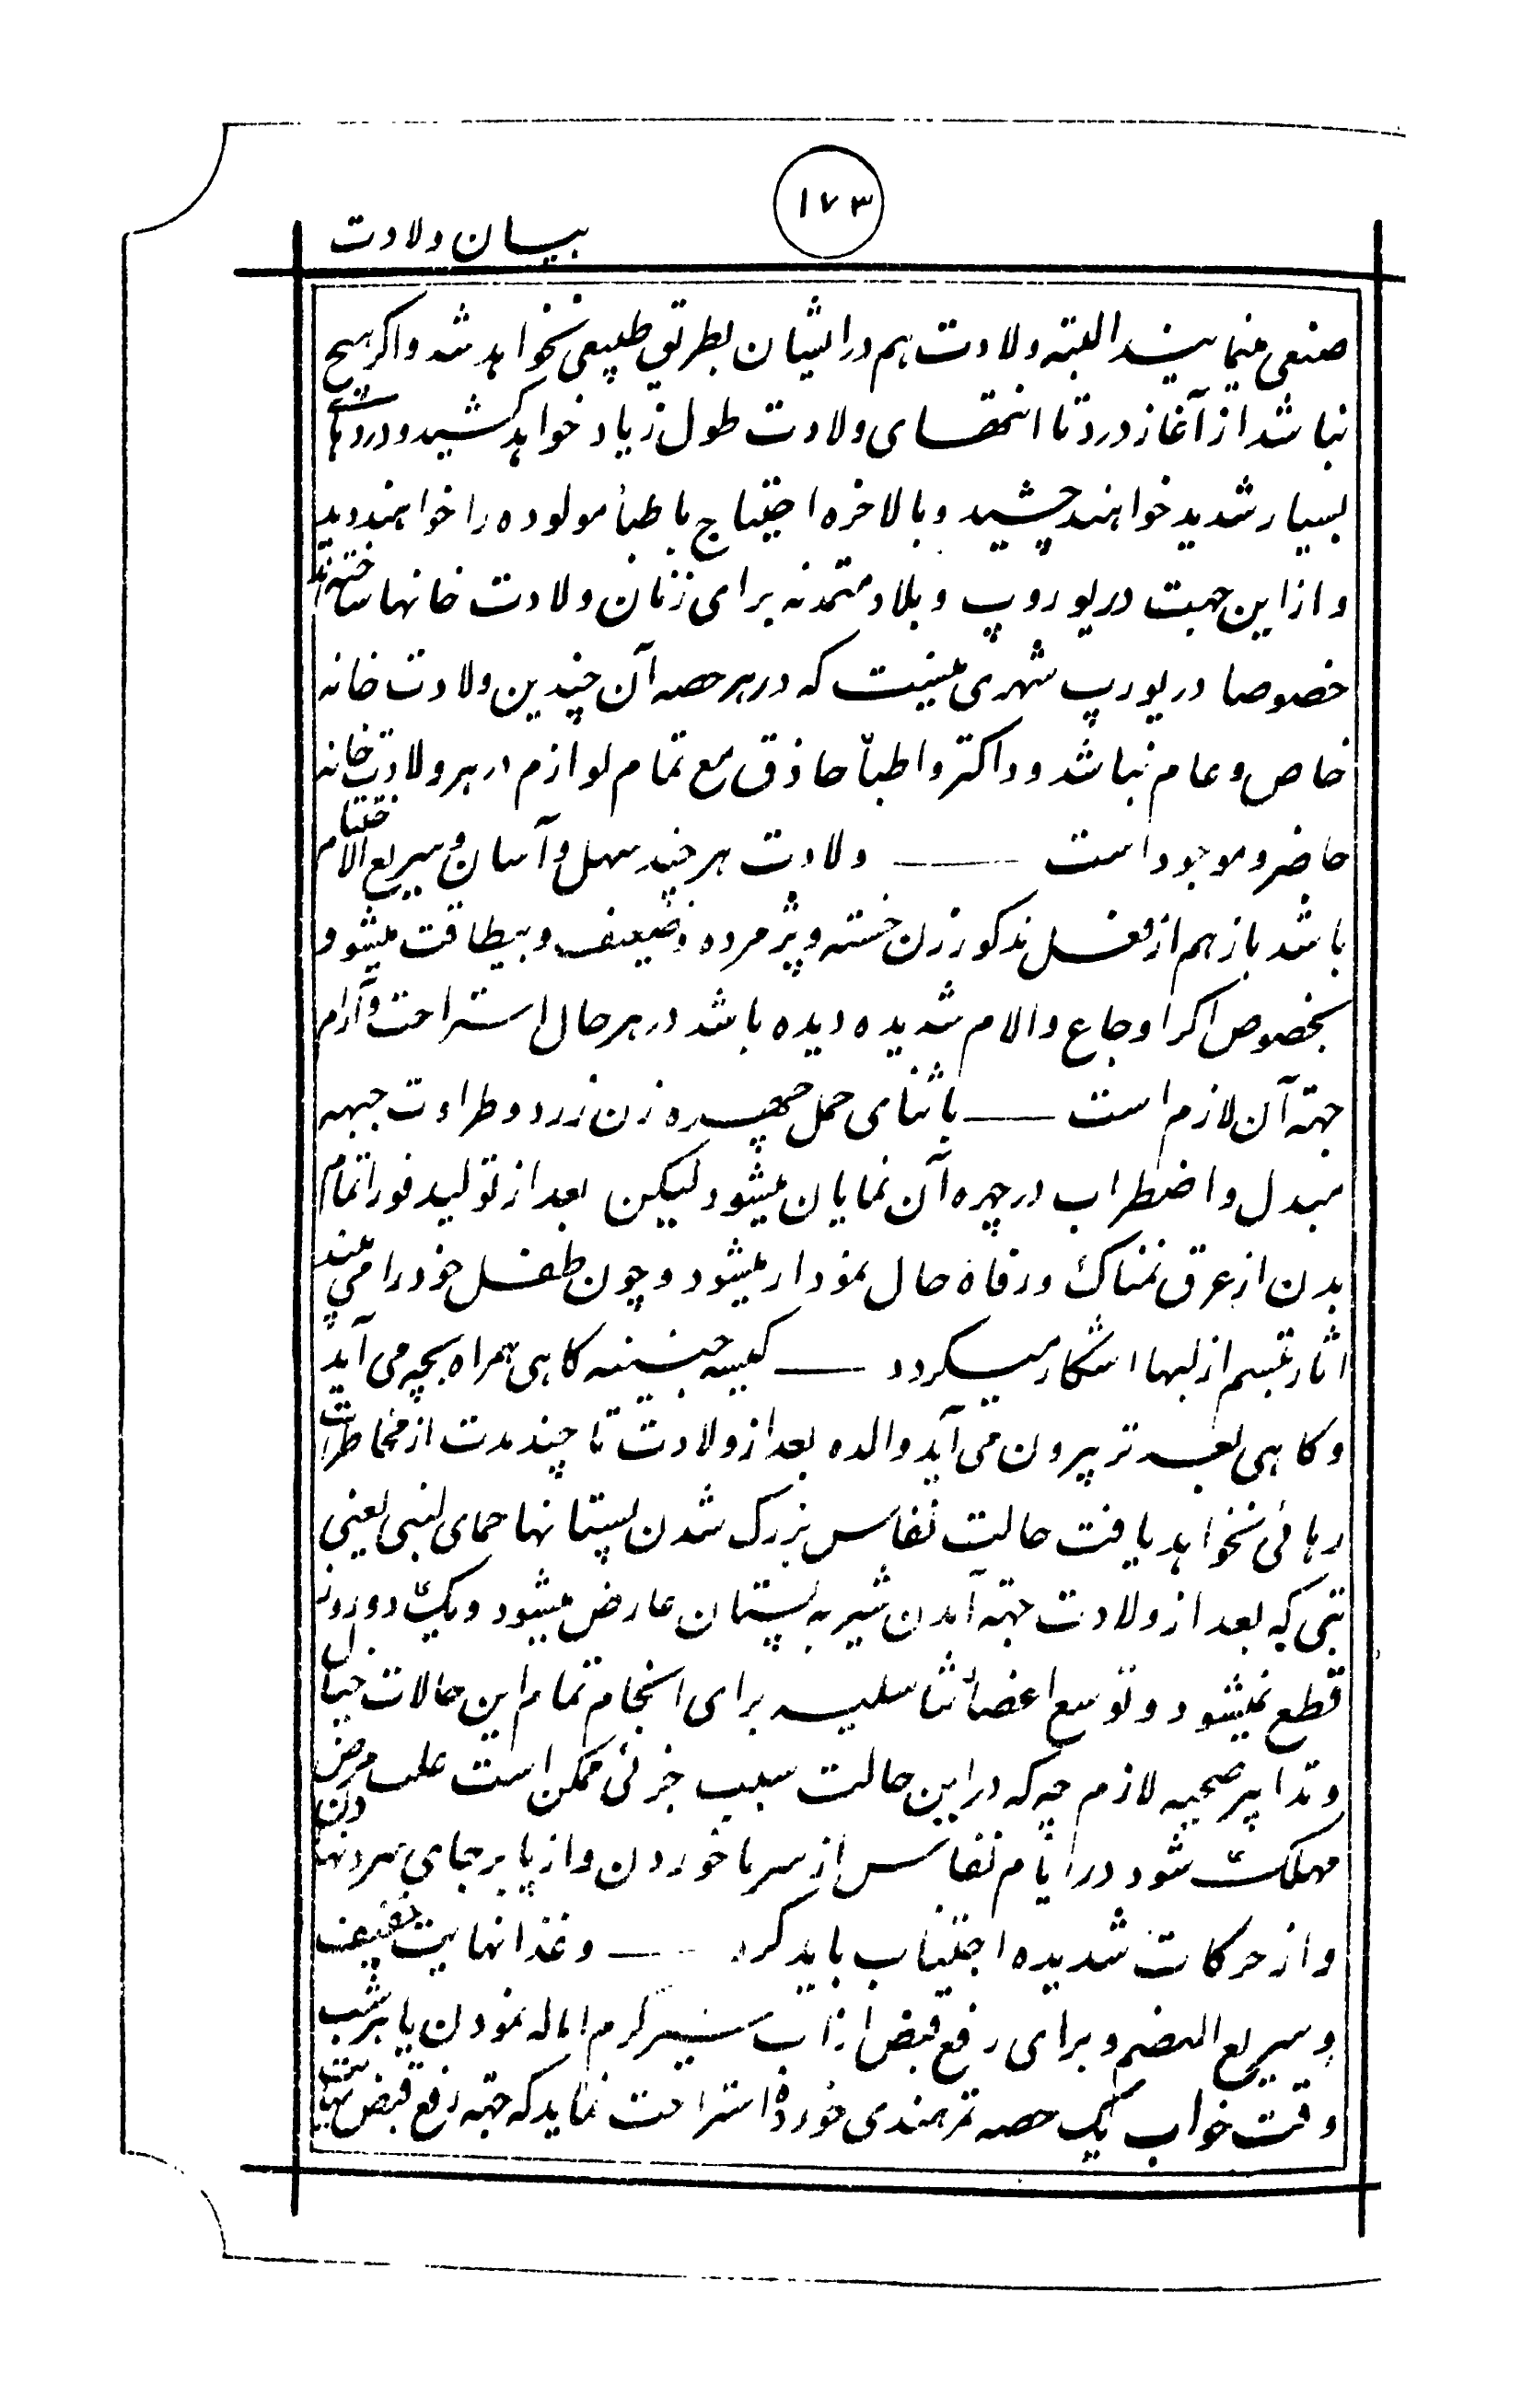 ۱۷۳
بیان ولادت
صنعی مینمایند البته ولادت هم در ایشان بطریق طبیعی نخواهد شد و اکر هیچ
نباشد از آغاز درد تا انقضای ولادت طول زیاد خواهد کشید و دردهای
بسیار شدید خواهند چشید و بالاخره احتیاج باطبأ مولوده را خواهند دید
و از این جهت در یوروپ و بلاد متمدنه برای زنان ولادت خانها ساخته اند
خصوصا در یورپ شهری نیست که در هر حصه آن چندین ولادت خانه
خاص و عام نباشد و داکتر و اطبأ حاذق مع تمام لوازم در هر ولادت خانه
حاضر و موجود است —— ولادت هر چند سهل و آسان و سریع الاختتام
باشد باز هم از فعل مذکور زن خسته و پژمرده و ضعیف و بیطاقت میشود
بخصوص اکر اوجاع و الام شدیده دیده باشد در هر حال استراحت و آرام
جهته آن لازم است —— باثنای حمل چهره زن زرد و طراوت جبهه
مبدل و اضطراب در چهره آن نمایان میشود لیکن بعد از تولید فورا تمام
بدن از عرق نمناک و رفاه حال نمودار میشود و چون طفل خود را می بیند
اثار تبسم از لبها اشکار میکردد —— کیسه جنینیه کاهی همراه بچه می آید
و کاهی بعد تر بیرون می آید والده بعد از ولادت تا چند مدت از مخاطرات
رهائی نخواهد یافت حالت نفاس بزرک شدن پستانها حمای لبنی یعنی
تبی که بعد از ولادت جهته آمدن شیر به پستان عارض میشود و یک دو روز
قطع نمیشود و توسع اعضأ تناسلیه برای انجام تمام این حالات خیال
و تدابیر صحیه لازم چه که در این حالت سبب جزئی ممکن است علت مرض
مهلک شود در ایام نفاس از سرما خوردن و از پا برجای سرد نهادن
و از حرکات شدیده اجتناب باید کرد —— و غذا نهایت خفیف
و سریع الهضم و برای رفع قبض از آب شیر کرم اماله نمودن یا بر شب
وقت خواب یک حصه تمر هندی خورده استراحت نماید که جهته رفع قبض